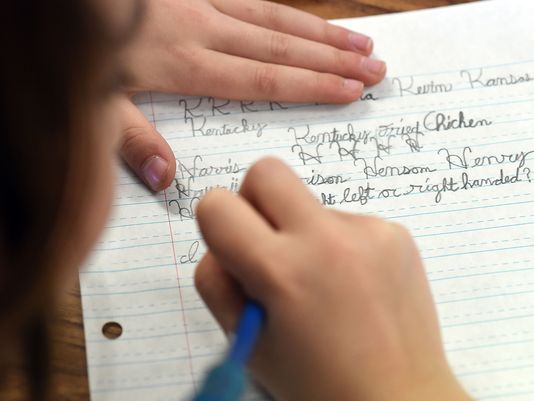 K K K K Kevin Kansas
Kentacky Kentucky Fried Chicken
H H H H
Harvis Henson Henry
left or right handed?